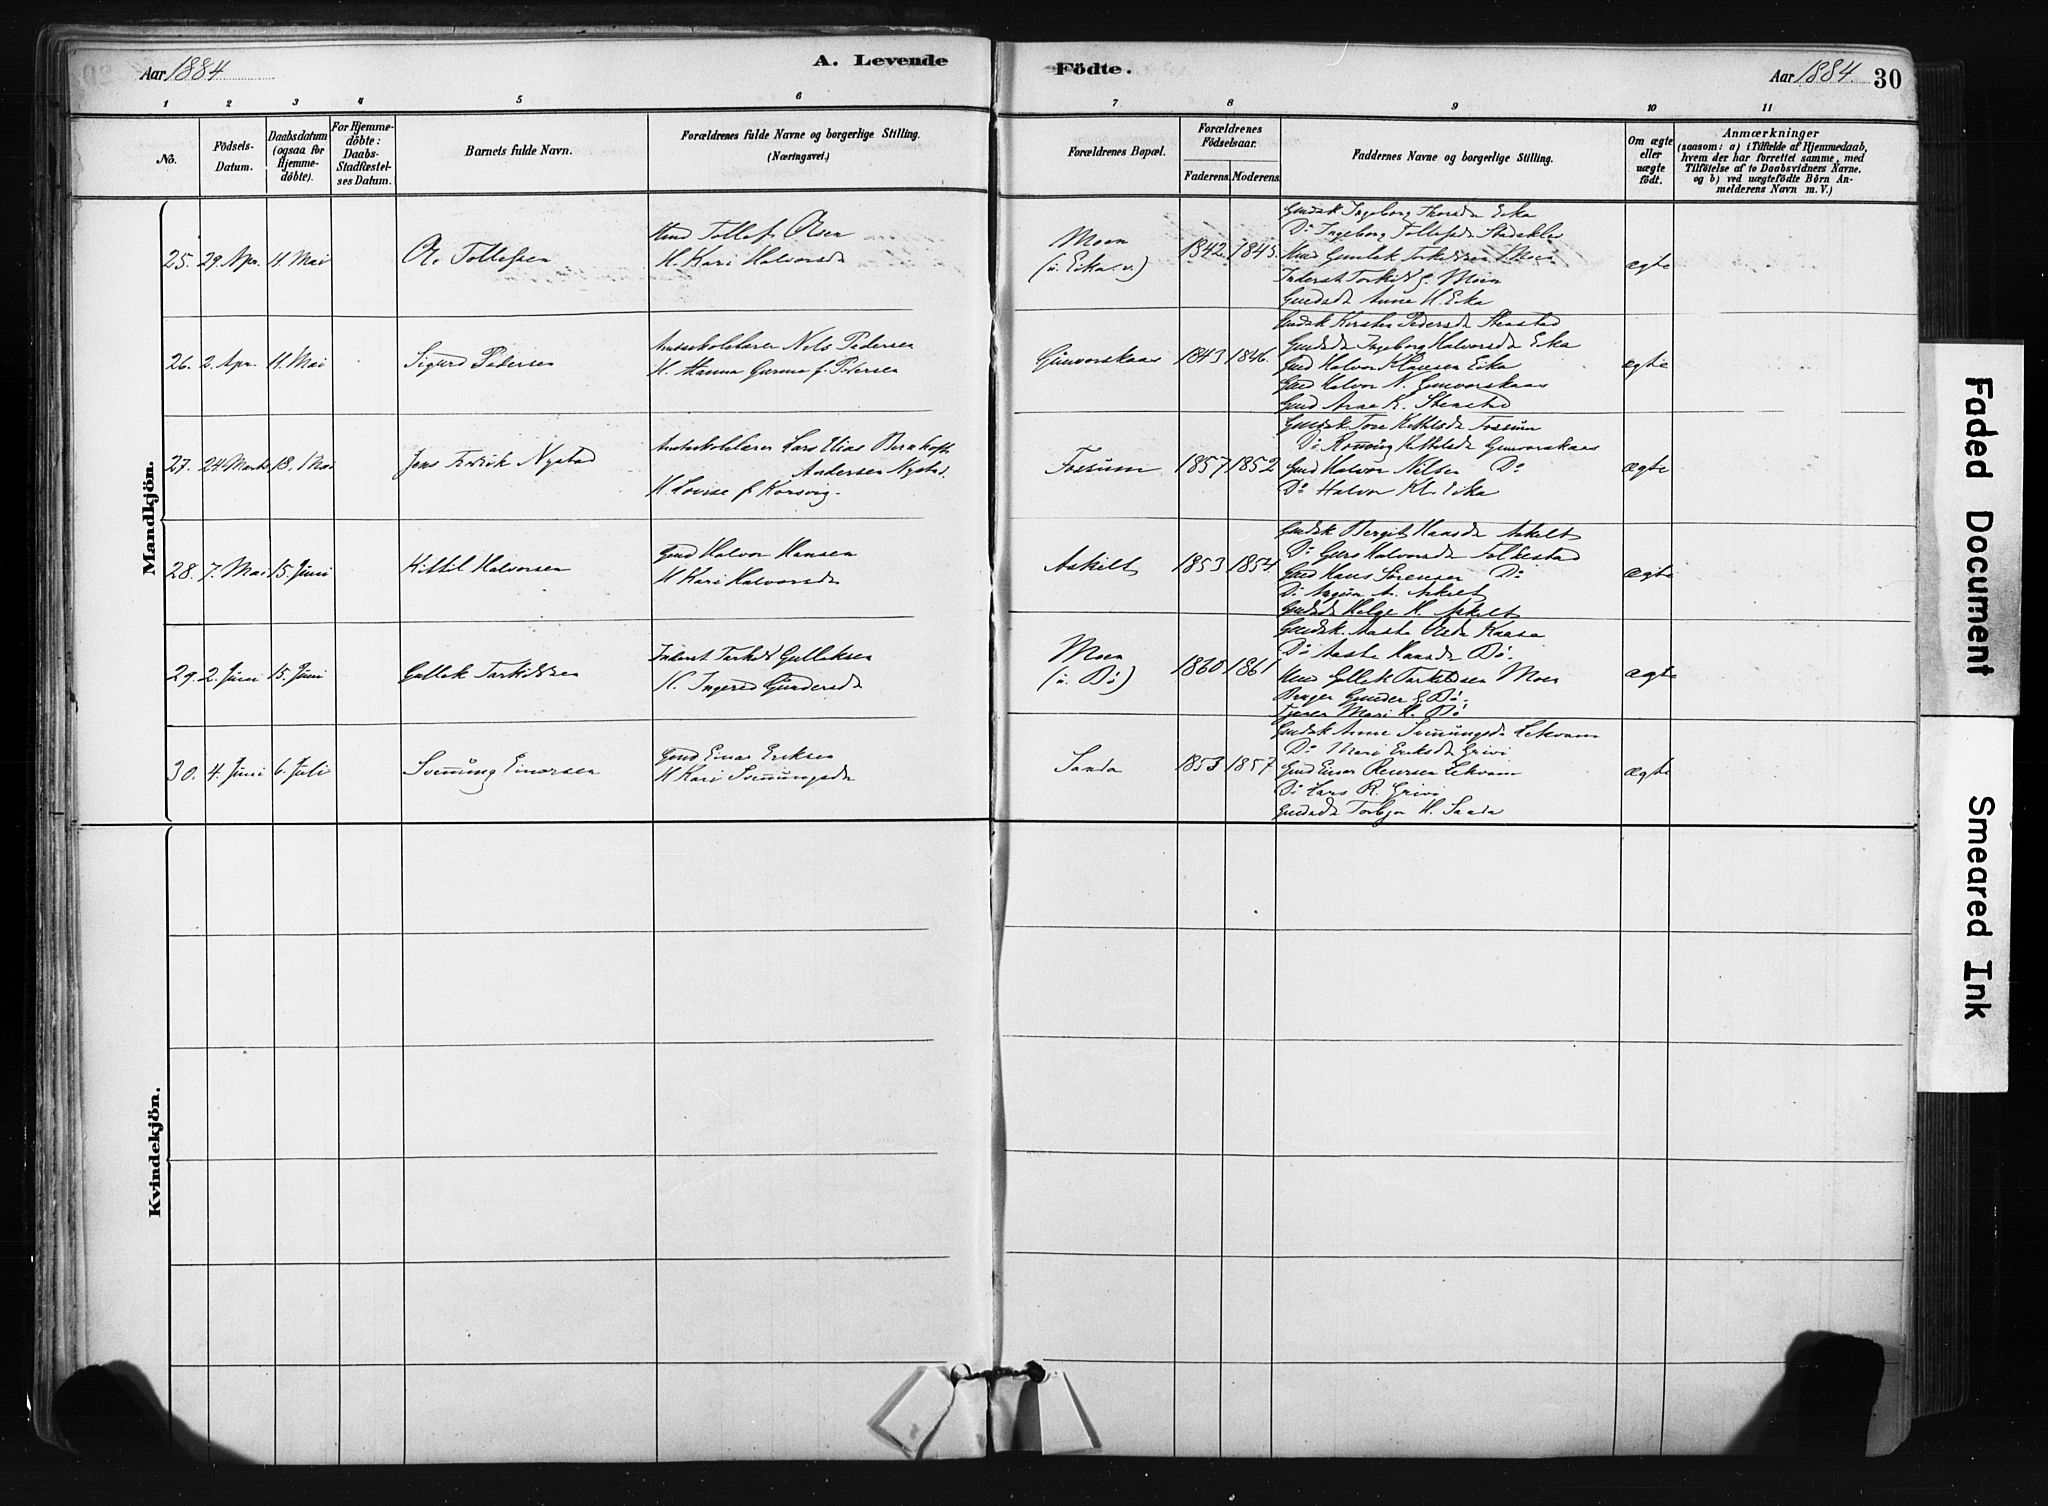 Aar 1884
A. Levende
Födte.
Aar 1884. 30
1 2 3 4 5 6 7 8 9 10 11
No.
Födsels-
Datum.
Daabsdatum
(ogsaa for
Hjemme-
döbte).
For Hjemme-
döbte:
Daabs-
Stadfæstel-
ses Datum.
Barnets fulde Navn.
Forældrenes fulde Navne og borgerlige Stilling.
(Næringsvei.)
Forældrenes Bopæl.
Forældrenes
Födselsaar.
Faderens. Moderens.
Faddernes Navne og borgerlige Stilling.
Om ægte
eller
uægte
født.
Anmærkninger
(saasom: a) i Tilfælde af Hjemmedaab,
hvem der har forrettet samme, med
Tilføielse af to Daabsvidners Navne.
og b) ved uægtefödte Börn An-
melderens Navn m. V.)
Mandkjön.
25. 29 Apr. 11. Mai
O. Tollefsen
Tollef Olsen
H. Kari Halvorsd
Moen
(u. Eika)
1842. 1845.
Gudsk Ingeborg Eika
Do Ingeborg Tollefsd
Moen
Inderst Torkild G. Moen
Anne H. Eika
ægte
26. 2. Apr. 11. Mai
Sigurd Pedersen
Amtsskolelærer Nils Pedersen
H. Hanna Gurina f. Pedersen
Gunvorskaas
1843 1846.
Gudsk Kirsten Pedersd Stenstad
Ingeborg Halvorsd Eika
Gmd Halvor Klausen Eika
Gmd Halvor N. Gunvorskaas
Gmd Arne K. Stenstad
ægte
27. 24. Marts 18. Mai
Jens Fredrik Nystad
Amtsskolelærer Lars Elias Bernhoft
Andersen Nystad.
H Lovise f Korsvig.
Fossum
1857 1852
Gudsk Tone Kittilsd Fossum
Do Kittilsd Gunvorskaas
Gmd Halvor Nilsen Do
Do Halvor Kl. Eika
ægte
28. 7. Mai 15. Juni
Kittil Halvorsen
Gmd Halvor Hansen
H Kari Halvorsd
Askilt
1853 1854
Gudsk Bergit Hansd Askilt
Do Guro Halvorsd Folkestad
Gmd Hans Sørensen Do
A. Askilt
Helge H. Askilt
ægte
29. 2. Juni 15. Juni
Gullek Tarkildsen
Inderst Tarkild Gulleksen
H. Ingered Gundersd
Moen
(u. Bø)
1860 1861
Gudsk. Aaste Olsd Kaasa
Do Aaste Hansd Bø.
Gullek Tarkildsen Moen
Bruger Gunder E. Bø.
Tjener Mari H. Bø
ægte
30. 4. Juni 6. Juli
Svennung Einarsen
Gmd Einar Eriksen
H Kari Svennungsd
Sanda
1853 1857
Gudsk Anne Svennungsd Lekvam
Do Mari Eriksd Grivi
Gmd Einar Lekvam
Do Lars R. Grivi
Torbjør H. Sanda
ægte
Kvindekjön.
Faded Document
Smeared Ink